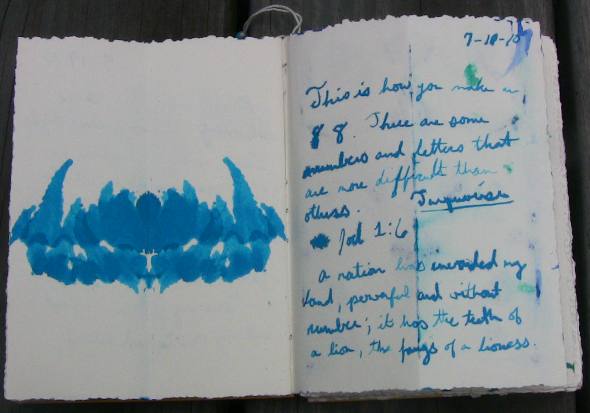 7-18-10
This is how you make an
8 8. There are some
numbers and letters that
are more difficult than
others. Turquoise
Joel 1:6
A nation has invaded my
land, powerful and without
number; it has the teeth of
a lion, the fangs of a lioness.